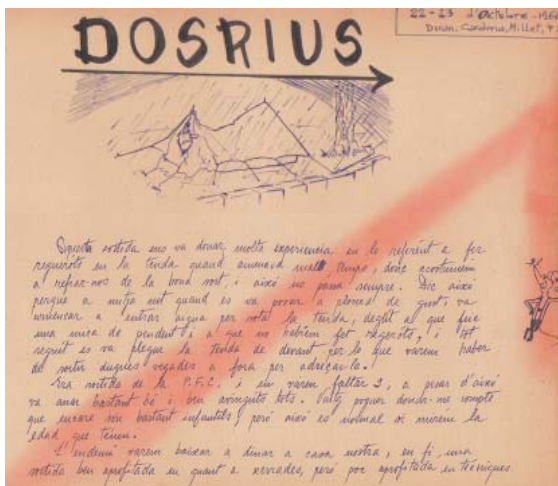 22-23 d'Octubre-196
Dosrius
DOSRIUS
Aquesta sortida ens va donar molta experiencia en lo referent a fer
reguerots en la tenda quand amenaça mal temps, donc acostumem
a refiar-nos de la bona sort, i això no passa sempre. Dic això
perquè a mitja nit quand es va posar a ploure de gust, va
començar a entrar aigua per sota la tenda, degut a que feie
una mica de pendent i a que no habiem fet regerots, i tot
seguit es va plegar la tenda de devant per lo que varem haber
de sortir dugues vegades a fora per adreçar-la.
Era sortida de la P.F.C. i en varem faltar 3, a pesar d'això
va anar bastant bé i ven avinguts tots. Vaig poguer donar-ne compte
que encare som bastant infantils, però això es normal si mirem la
edad que tenim.
L'endemà varem baixar a dinar a casa nostra, en fi, una
sortida ben aprofitada en quant a xerrades, però poc aprofitada en tècniques